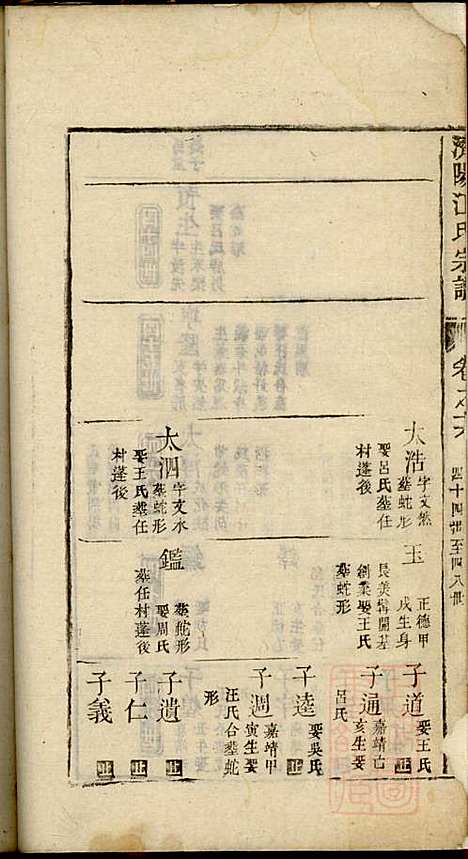 濟陽江氏宗譜
卷之六
四十四世至四八世
太浩
字文然
葬蛇形
娶呂氏葬任
村蓬後
太泗
字文水
葬蛇形
娶王氏葬任
村蓬後
玉
正德甲
戌生身
長美髯開基
創業娶王氏
葬蛇形
鑑
葬蛇形
娶周氏
葬任村蓬後
子道
娶王氏
止
子通
嘉靖古
亥生娶
呂氏
子逵
娶吳氏
止
子週
嘉靖甲
寅生娶
汪氏合葬蛇
形
子遺
止
子仁
止
子義
止